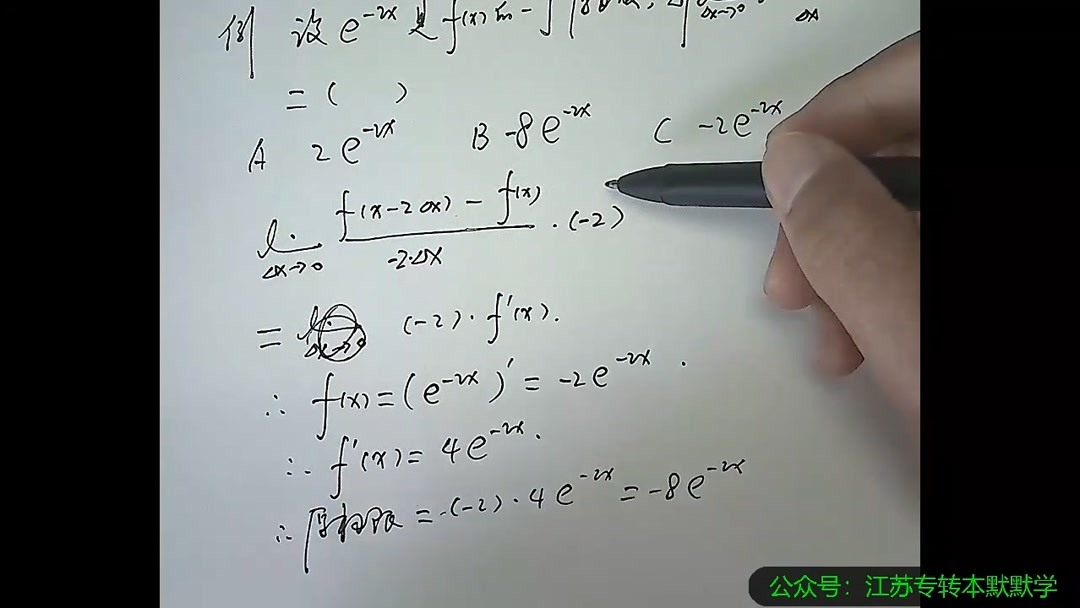 例 设 e^{-2x} 是 f(x) 的一 Δx→0 Δx
= ( )
A 2e^{-2x} B -8e^{-2x} C -2e^{-2x}
lim Δx→0 \frac{f(x-2Δx) - f(x)}{-2·Δx} · (-2)
= (-2) · f'(x).
∴ f(x) = (e^{-2x})' = -2e^{-2x}.
∴ f'(x) = 4e^{-2x}.
∴ 原极限 = (-2) · 4e^{-2x} = -8e^{-2x}
公众号：江苏专转本默默学